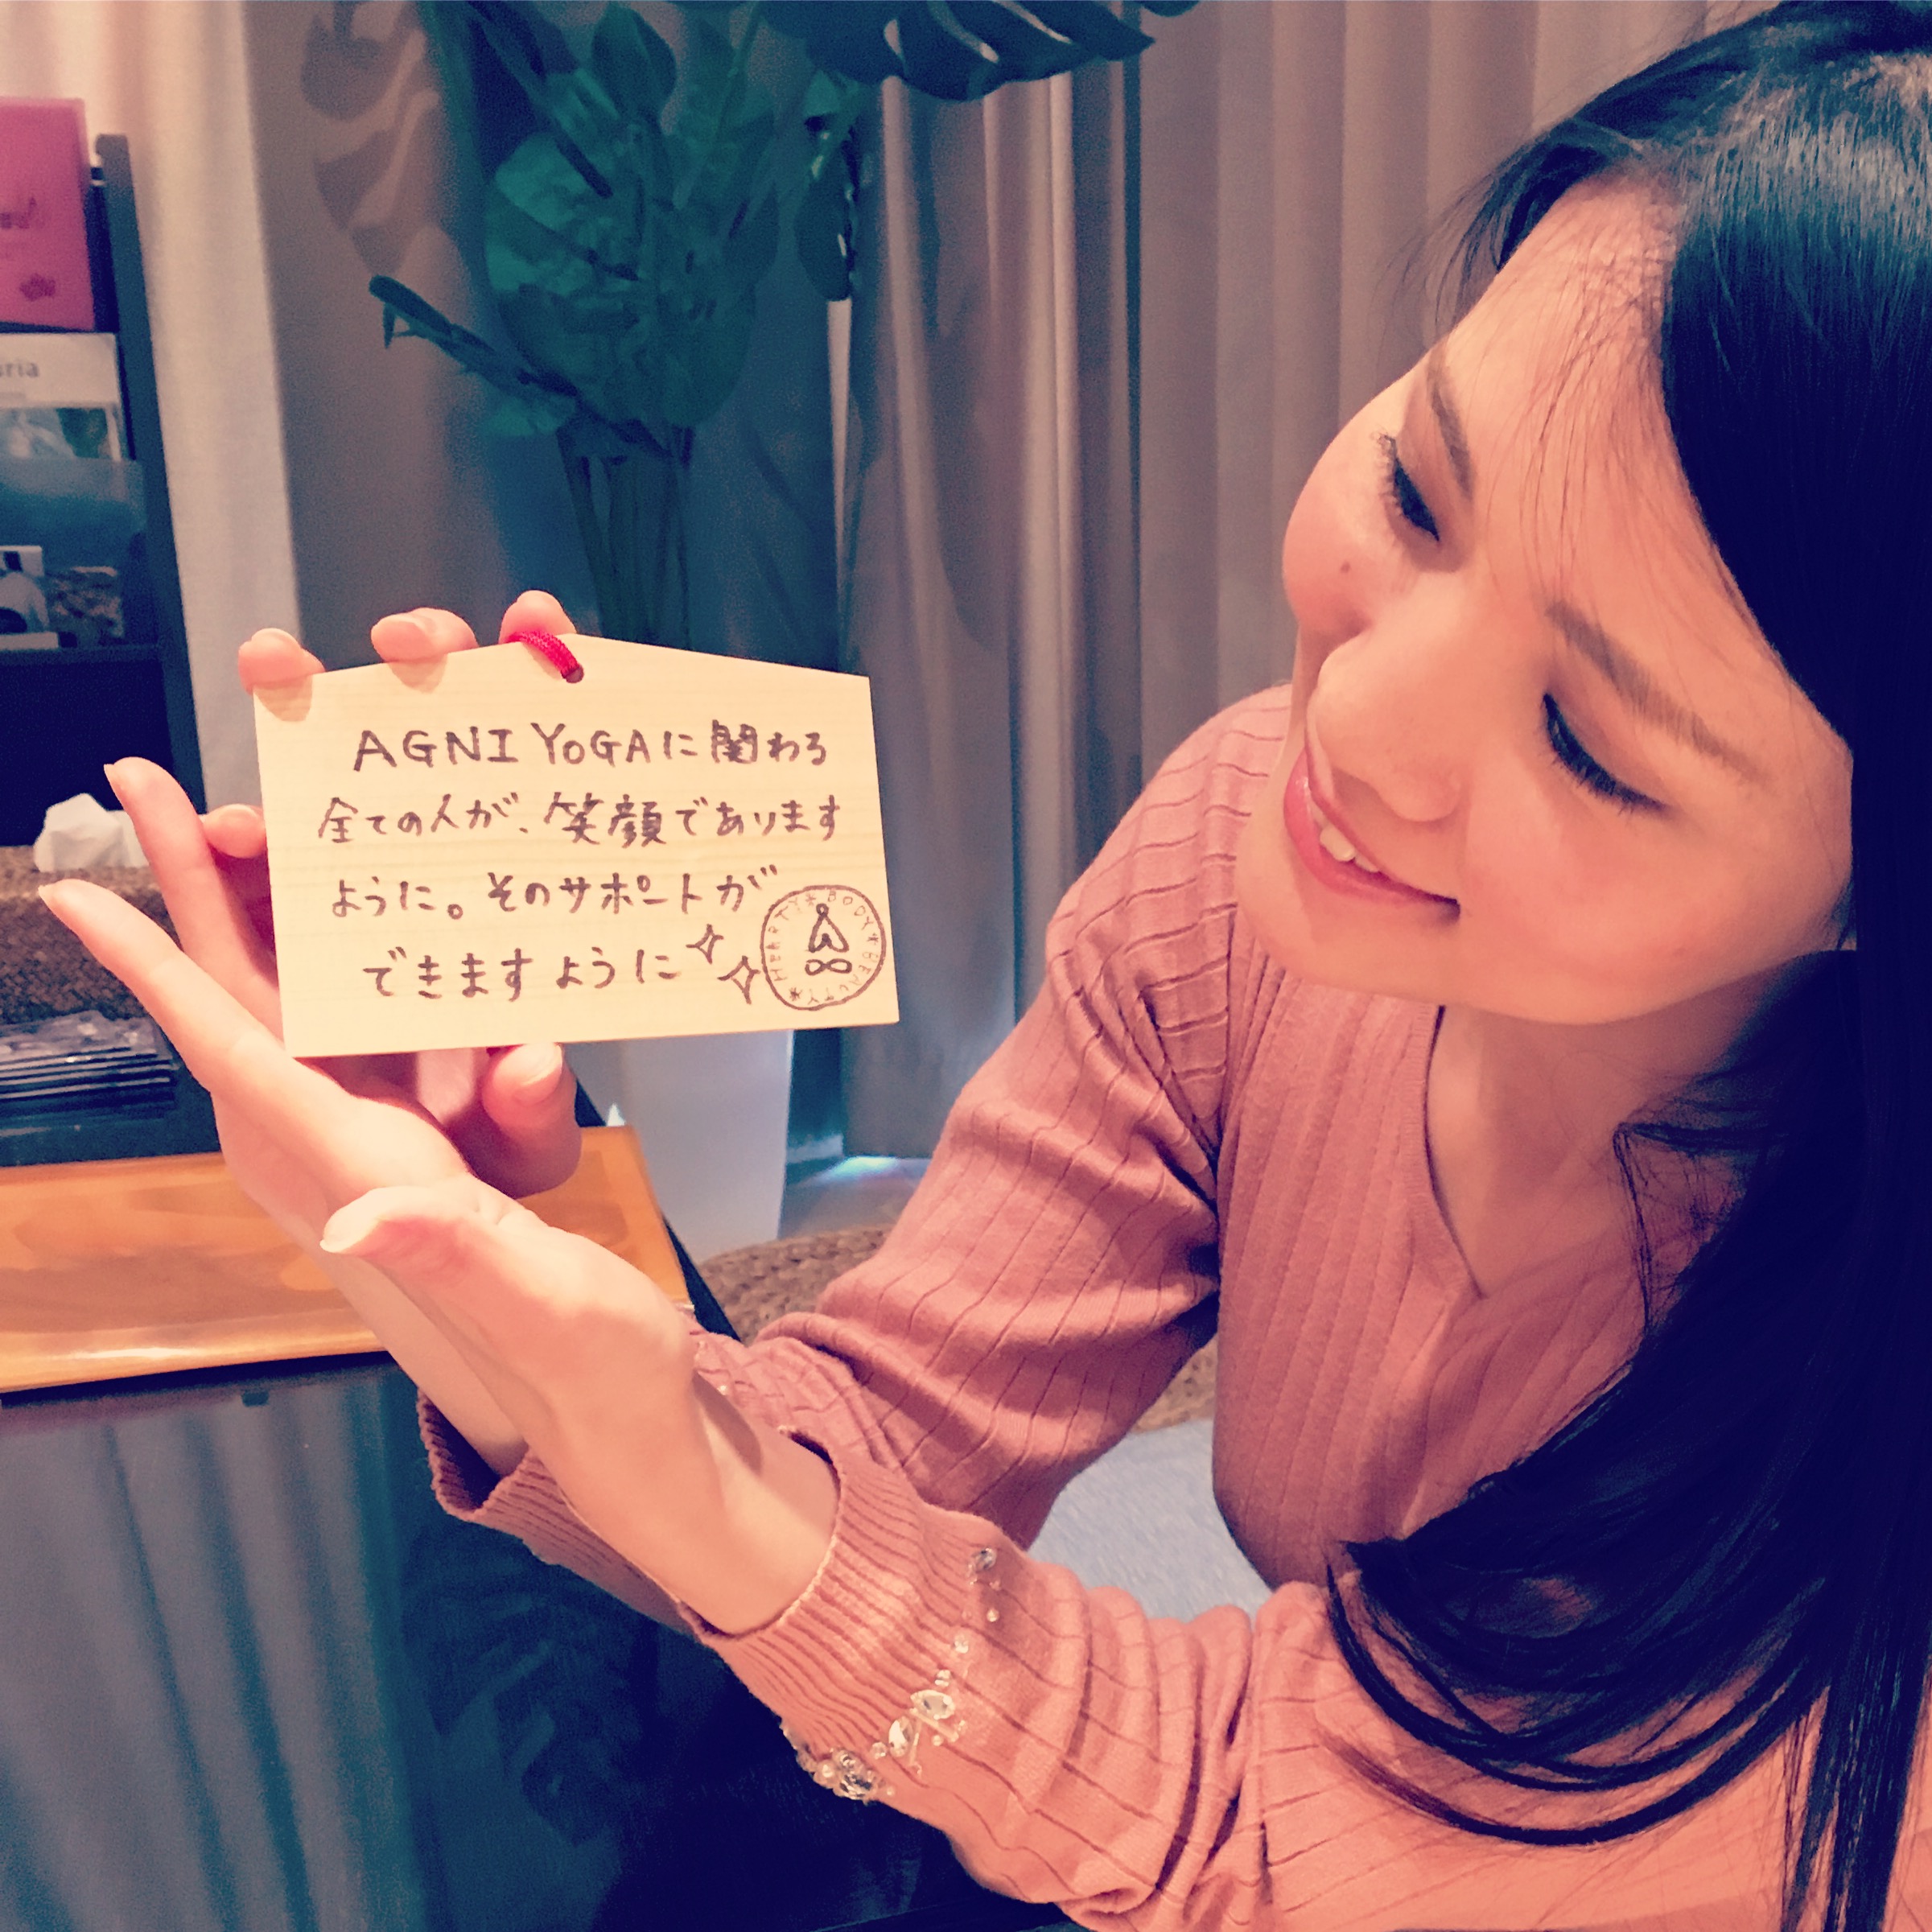 AGNI YOGAに関わる
全ての人が、笑顔であります
ように。そのサポートが
できますように
HEARTY*BODY*BEAUTY*